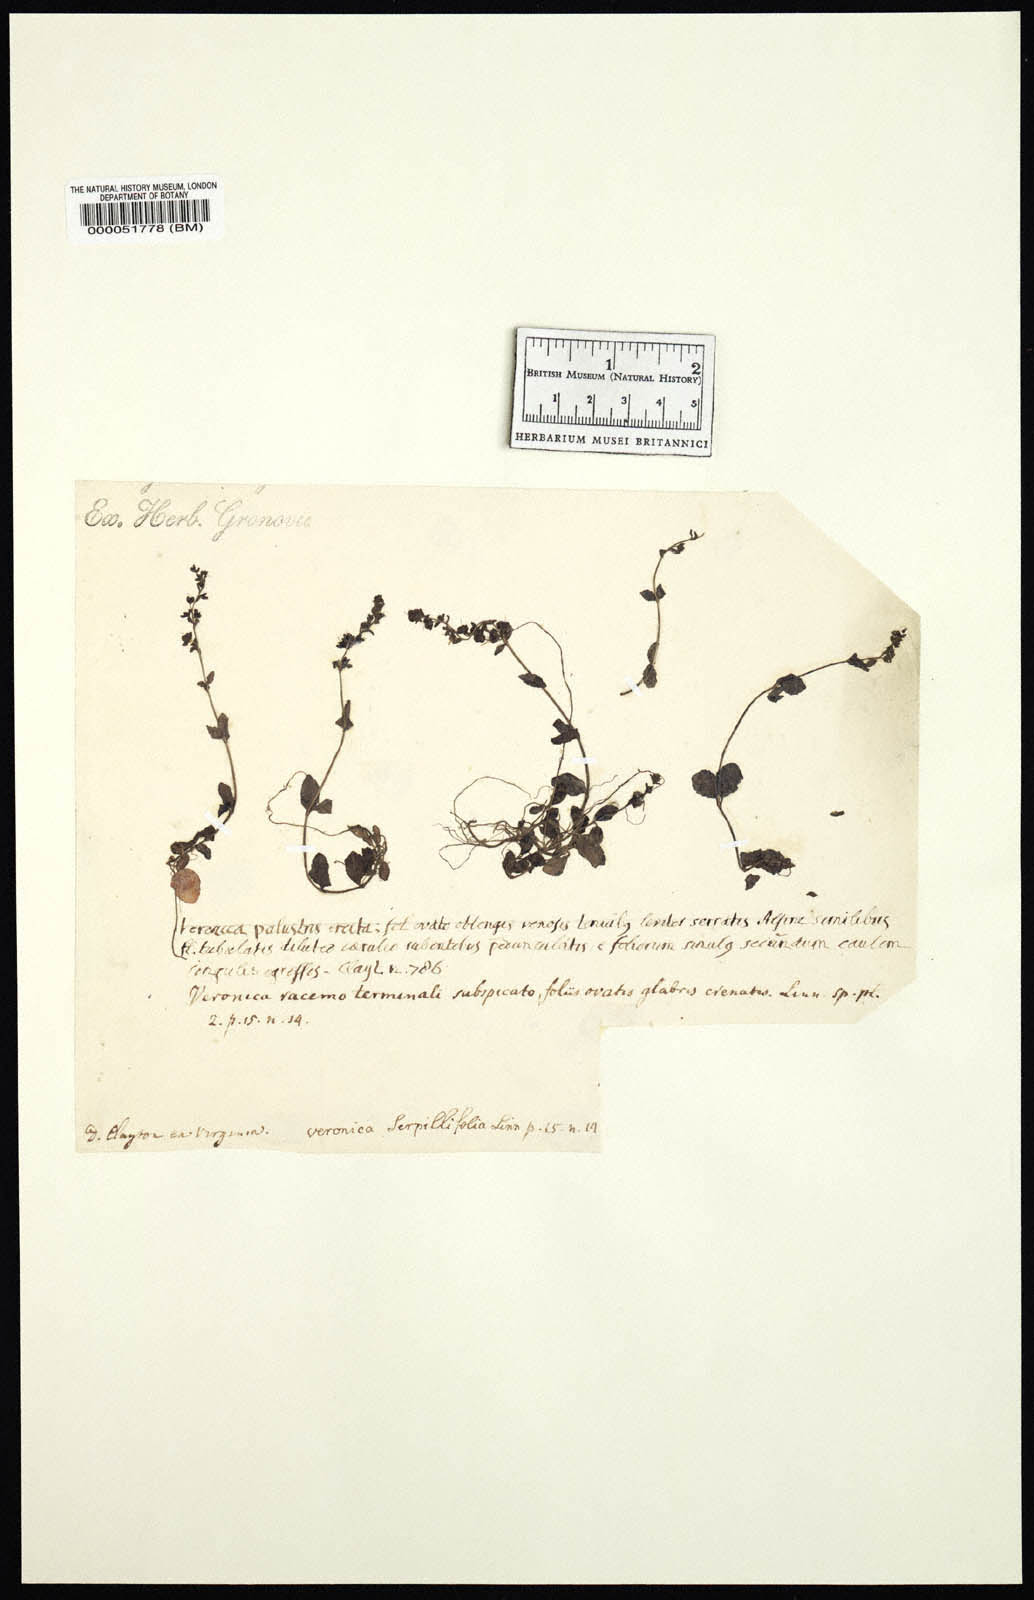 THE NATURAL HISTORY MUSEUM, LONDON
DEPARTMENT OF BOTANY
000051778 (BM)
1 2
BRITISH MUSEUM (NATURAL HISTORY)
1 2 3 4 5
HERBARIUM MUSEI BRITANNICI
Ex. Herb. Gronovii
Veronica palustris erecta: fol. ovato oblongis venosis serratis Alsine similibus
fl. dilute cæruleis pedunculatis e foliorum secundum caulem
singulis egressis - Clayt. n. 786.
Veronica racemo terminali subspicato, foliis ovatis glabris crenatis. Linn. sp. pl.
2. p. 15. n. 14.
D. Clayton ex Virginia. veronica Serpillifolia Linn p. 15. n. 14